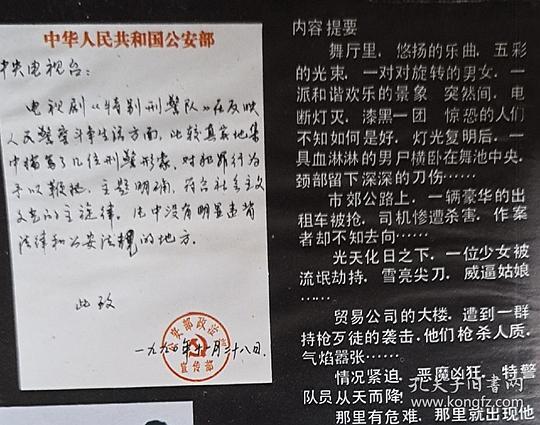 中华人民共和国公安部
中央电视台：
电视剧《特别刑警队》在反映
人民警察斗争生活方面，比较真实地集
中描写了几位刑警形象，对犯罪行为
予以鞭挞，主题明确，符合社会主义
文艺的主旋律。片中没有明显违背
法律和公安法规的地方。
此致
公安部政治部
宣传部
一九九〇年十一月二十八日
内容提要
舞厅里，悠扬的乐曲，五彩
的光束，一对对旋转的男女，一
派和谐欢乐的景象 突然间，电
断灯灭，漆黑一团 惊恐的人们
不知如何是好，灯光复明后，一
具血淋淋的男尸横卧在舞池中央，
颈部留下深深的刀伤……
市郊公路上，一辆豪华的出
租车被抢，司机惨遭杀害，作案
者却不知去向……
光天化日之下，一位少女被
流氓劫持，雪亮尖刀，威逼姑娘
……
贸易公司的大楼，遭到一群
持枪歹徒的袭击，他们枪杀人质，
气焰嚣张……
情况紧迫，恶魔凶狂，特警
队员从天而降！
那里有危难，那里就出现他
孔夫子旧书网
www.kongfz.com